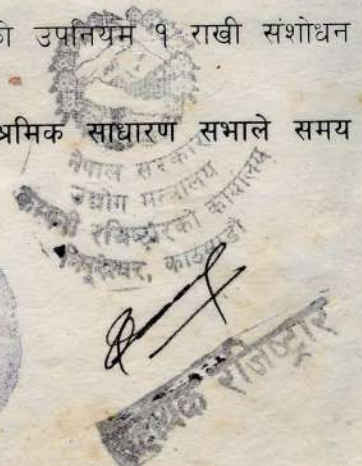 उपनियम १ राखी संशोधन
श्रमिक साधारण सभाले समय
नेपाल सरकार
उद्योग मन्त्रालय
कम्पनी रजिष्ट्रारको कार्यालय
त्रिपुरेश्वर, काठमाडौं
रजिष्ट्रार